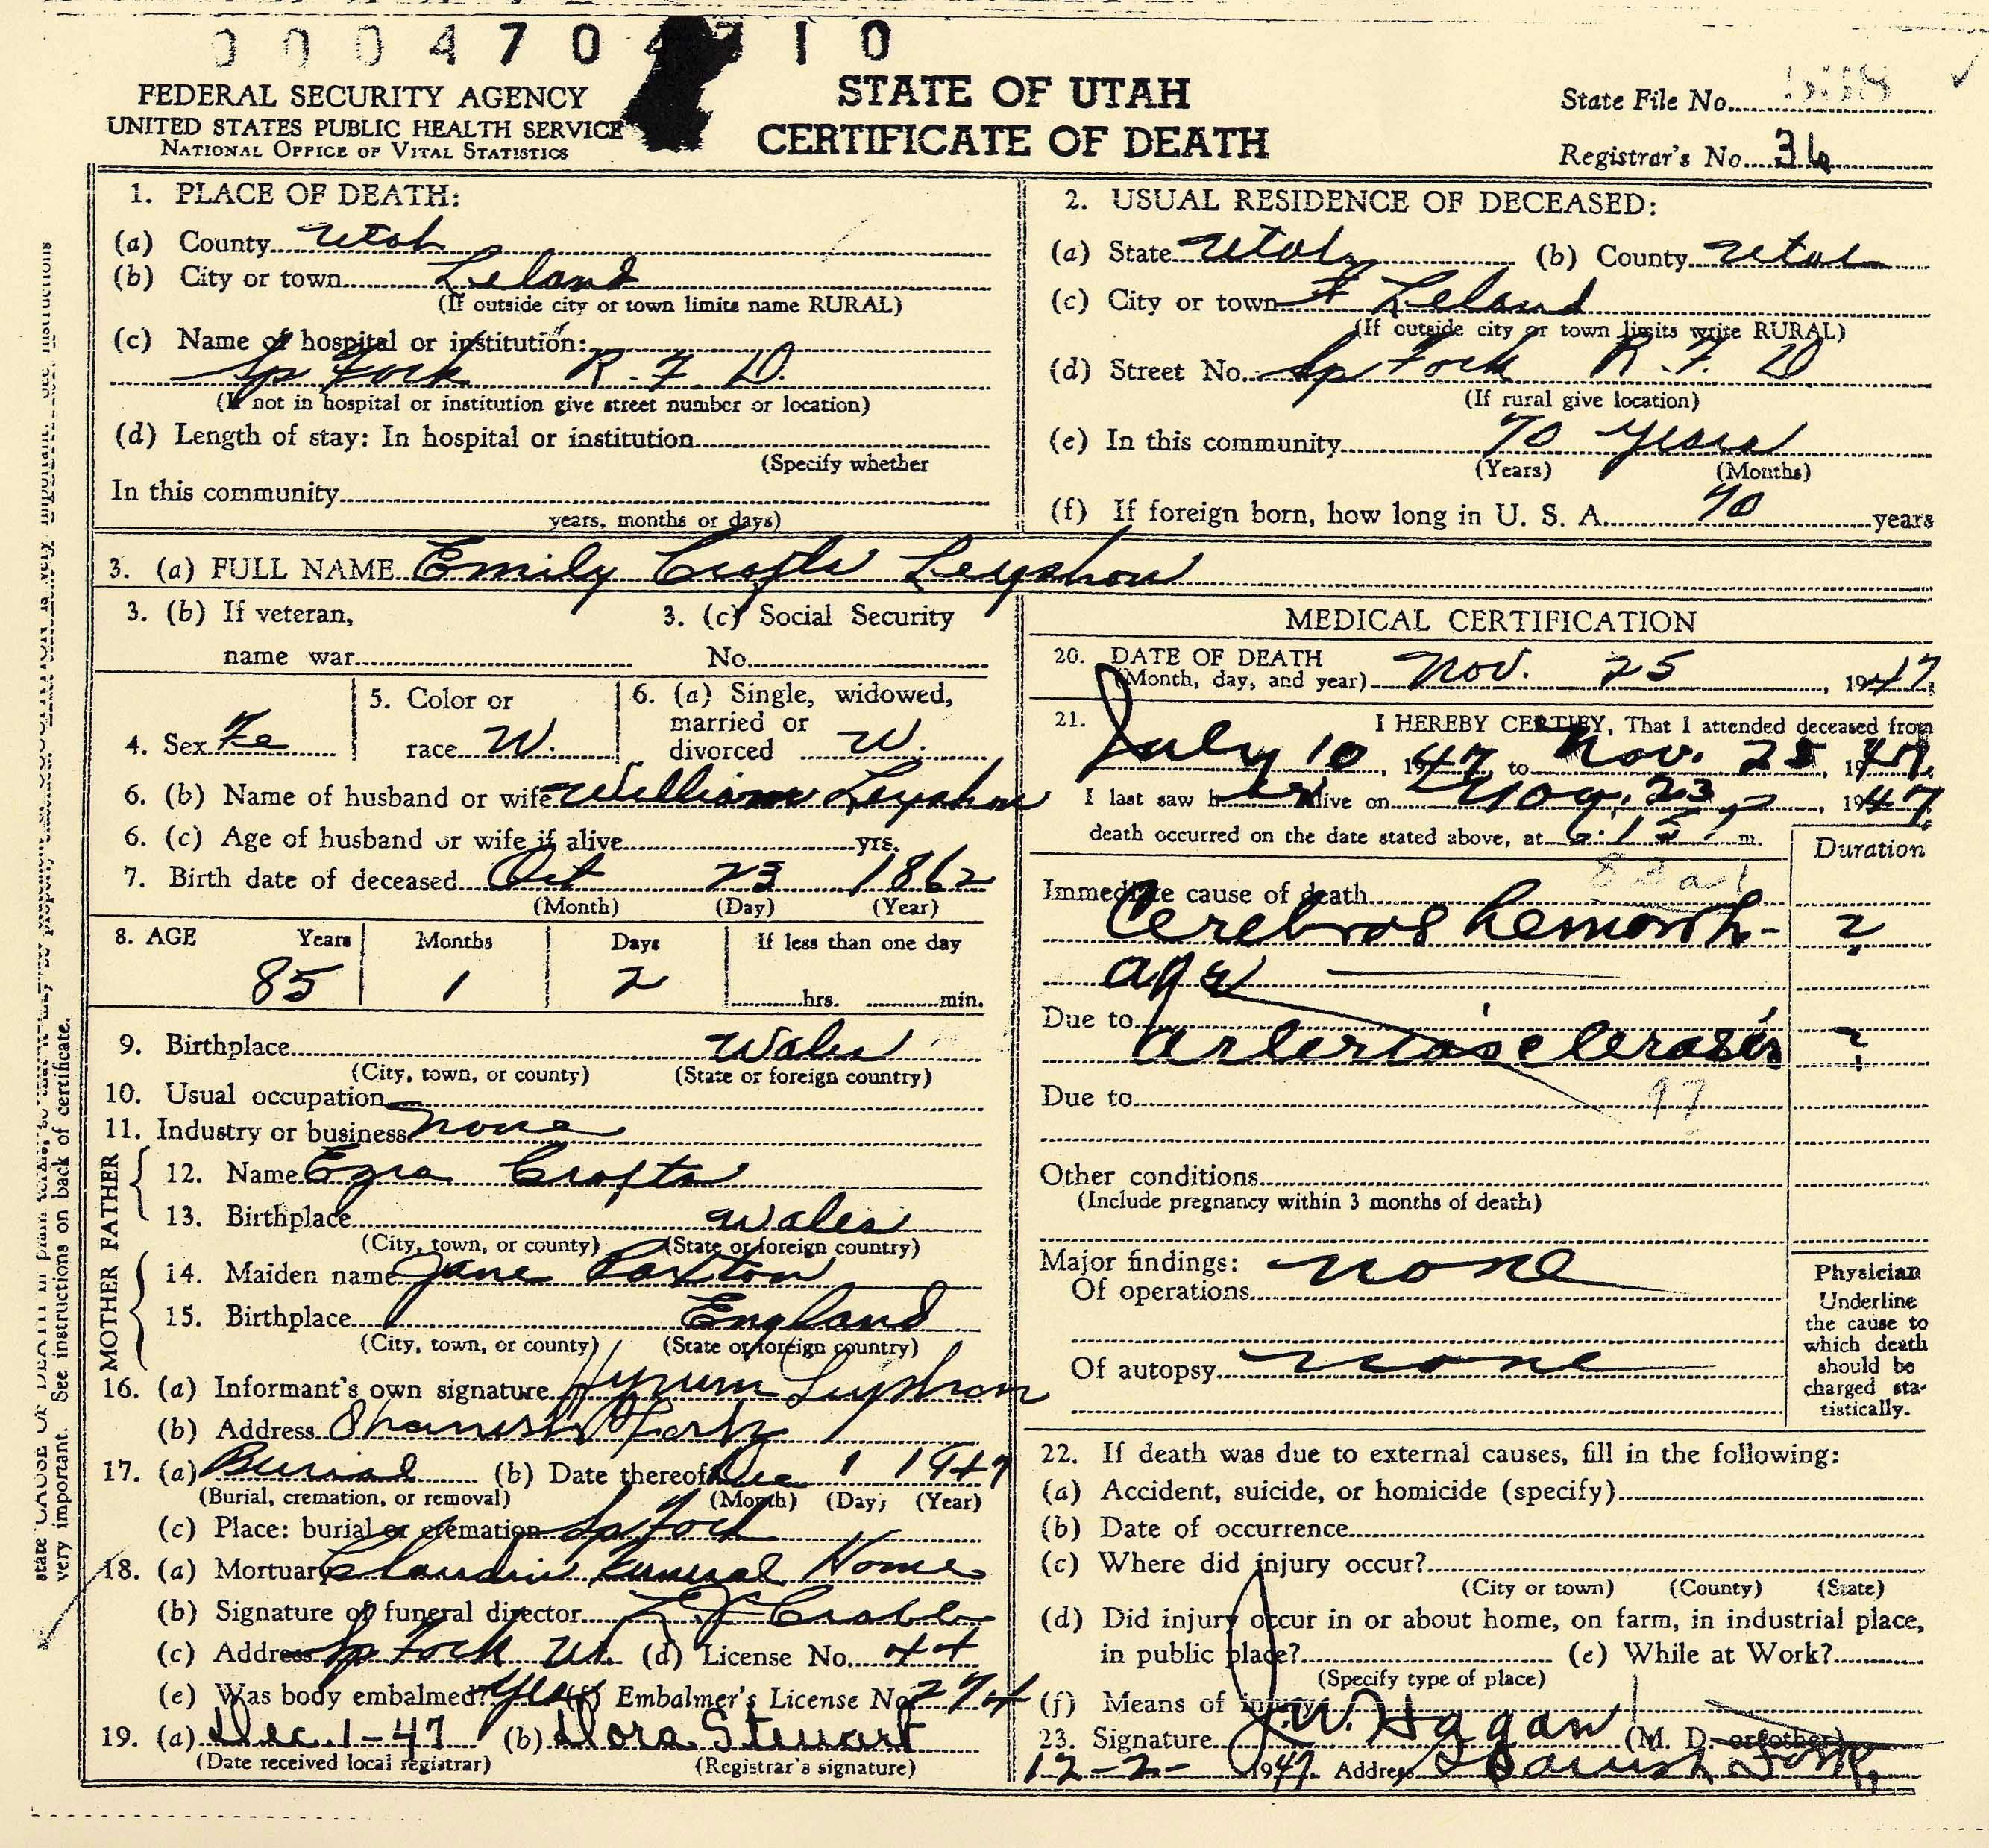 0 0 0 4 7 0 1 0
FEDERAL SECURITY AGENCY
UNITED STATES PUBLIC HEALTH SERVICE
NATIONAL OFFICE OF VITAL STATISTICS
STATE OF UTAH
CERTIFICATE OF DEATH
State File No.
Registrar's No. 36
1. PLACE OF DEATH:
(a) County Utah
(b) City or town Leland
(If outside city or town limits name RURAL)
(c) Name of hospital or institution:
Sp Fork R. F. D.
(If not in hospital or institution give street number or location)
(d) Length of stay: In hospital or institution
(Specify whether
In this community
years, months or days)
2. USUAL RESIDENCE OF DECEASED:
(a) State Utah (b) County Utah
(c) City or town Leland
(If outside city or town limits write RURAL)
(d) Street No. Sp Fork R. F. D
(If rural give location)
(e) In this community 70 years
(Years) (Months)
(f) If foreign born, how long in U. S. A. 70 years
3. (a) FULL NAME Emily Crofts Leyshon
3. (b) If veteran,
name war
3. (c) Social Security
No.
4. Sex Fe
5. Color or
race W.
6. (a) Single, widowed,
married or
divorced W.
6. (b) Name of husband or wife William Leyshon
6. (c) Age of husband or wife if alive yrs.
7. Birth date of deceased Oct 23 1862
(Month) (Day) (Year)
8. AGE Years Months Days If less than one day
85 1 2 hrs. min.
9. Birthplace Wales
(City, town, or county) (State or foreign country)
10. Usual occupation
11. Industry or business none
FATHER
12. Name Ezra Crofts
13. Birthplace Wales
(City, town, or county) (State or foreign country)
MOTHER
14. Maiden name Jane Paxton
15. Birthplace England
(City, town, or county) (State or foreign country)
16. (a) Informant's own signature Hyrum Leyshon
(b) Address Spanish Fork
17. (a) Burial (b) Date thereof Dec 1 1947
(Burial, cremation, or removal) (Month) (Day) (Year)
(c) Place: burial or cremation Sp Fork
18. (a) Mortuary Claudin Funeral Home
(b) Signature of funeral director
(c) Address Sp Fork Ut. (d) License No. 44
(e) Was body embalmed? Yes (f) Embalmer's License No. 274
19. (a) Dec. 1-47 (b) Dora Stewart
(Date received local registrar) (Registrar's signature)
MEDICAL CERTIFICATION
20. DATE OF DEATH
(Month, day, and year) Nov. 25, 1947
21. I HEREBY CERTIFY, That I attended deceased from
July 10, 1947 to Nov. 25, 1947.
I last saw her alive on Nov. 23, 1947.
death occurred on the date stated above, at 6:15 P m.
Duration
Immediate cause of death
Cerebral hemorrh- ?
age
Due to
arteriosclerosis ?
Due to 97
Other conditions
(Include pregnancy within 3 months of death)
Major findings: none
Of operations
Of autopsy none
Physician
Underline
the cause to
which death
should be
charged sta-
tistically.
22. If death was due to external causes, fill in the following:
(a) Accident, suicide, or homicide (specify)
(b) Date of occurrence
(c) Where did injury occur?
(City or town) (County) (State)
(d) Did injury occur in or about home, on farm, in industrial place,
in public place? (e) While at Work?
(Specify type of place)
(f) Means of injury
23. Signature J. W. Hagan (M. D. or other)
12-2- 1947. Address Spanish Fork,
state CAUSE OF DEATH in plain terms, so that it may be properly
very important. See instructions on back of certificate.